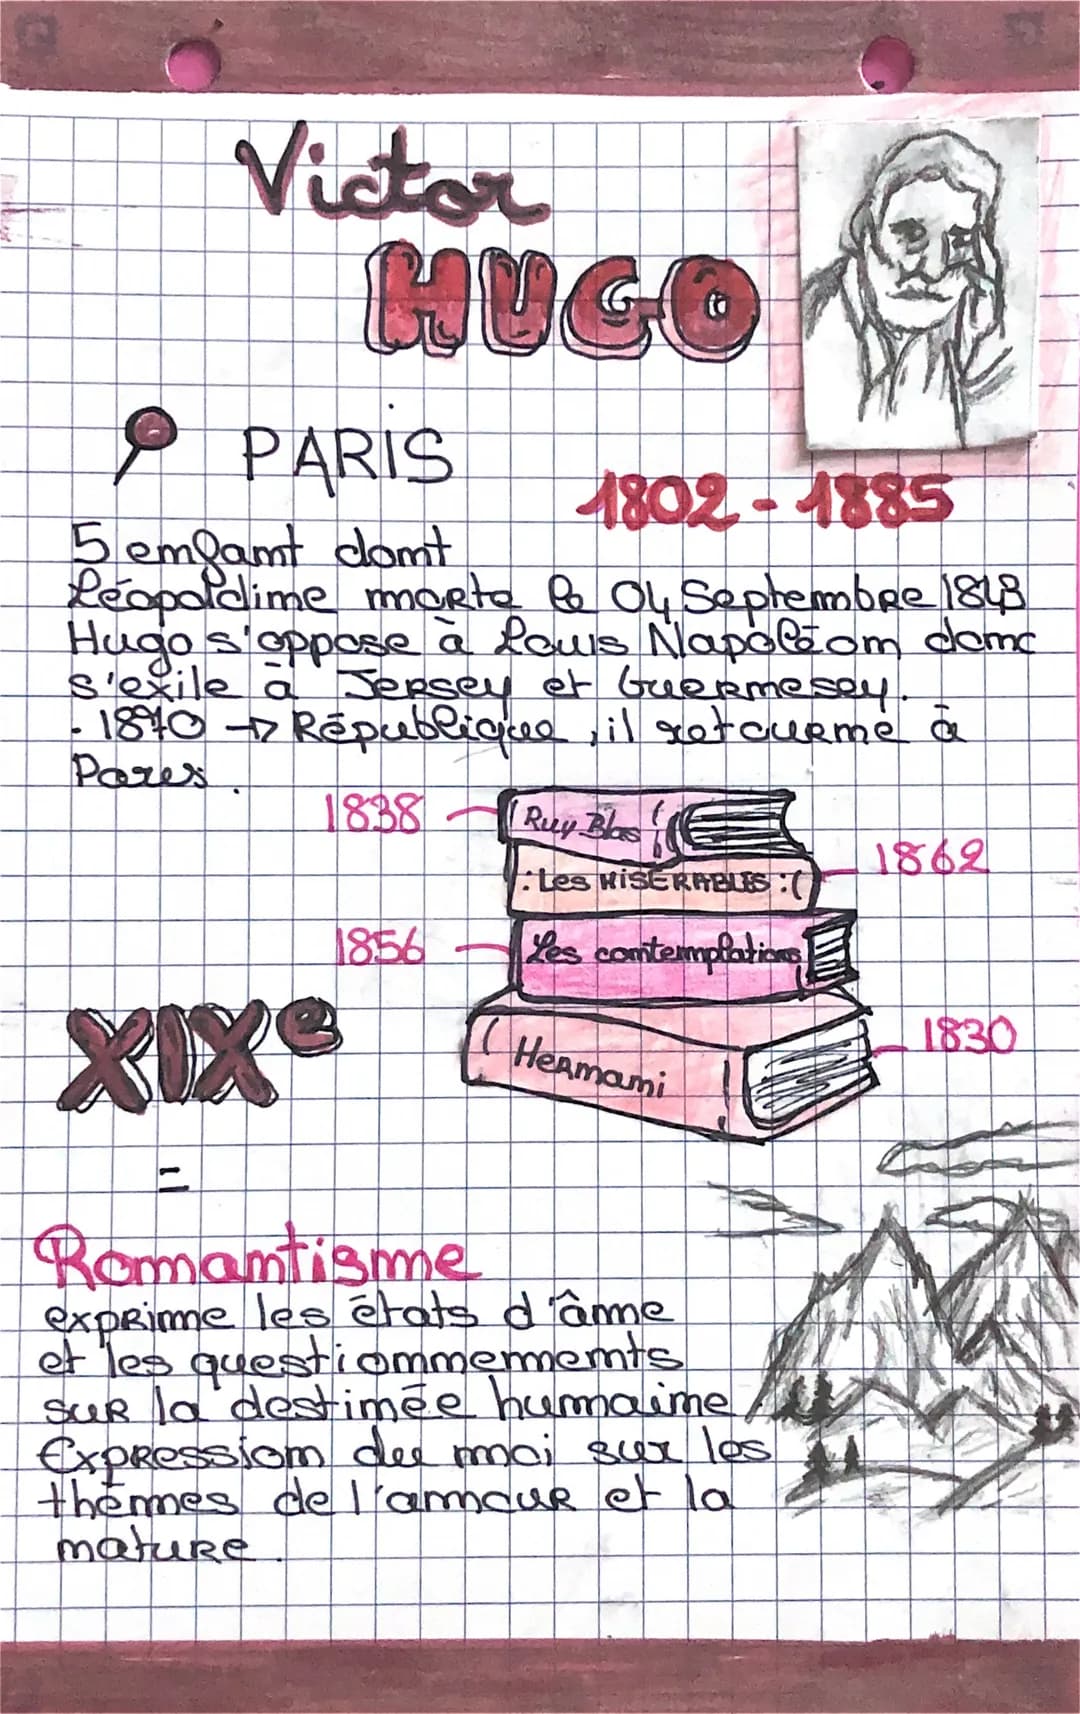 Victor
HUGO
PARIS
1802 - 1885
5 enfant dont
Léopoldine morte le 04 Septembre 1843
Hugo s'oppose à Louis Napoléon donc
s'exile à Jersey et Guernesey.
- 1870 → République, il retourne à
Pares.
1838
Ruy Blas
1862
: Les MISÉRABLES :(
1856
Les contemplations
XIXe
1830
Hernani
=
Romantisme
exprime les états d'âme
et les questionnements
sur la destinée humaine
Expression du moi sur les
thèmes de l'amour et la
nature.